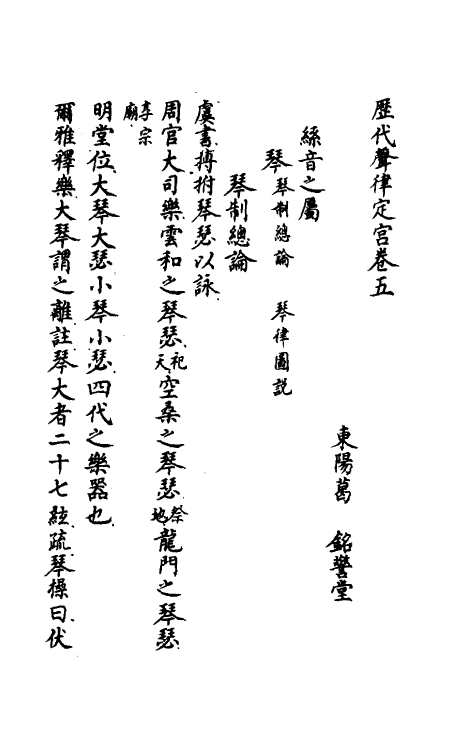 歷代聲律定宮卷五
東陽葛 銘警堂
絲音之屬
琴 琴制總論 琴律圖説
琴制總論
虞書搏拊琴瑟以詠
周官大司樂雲和之琴瑟祀天空桑之琴瑟祭地龍門之琴瑟
享宗廟
明堂位大琴大瑟小琴小瑟四代之樂器也
爾雅釋樂大琴謂之離註琴大者二十七絃疏琴操曰伏